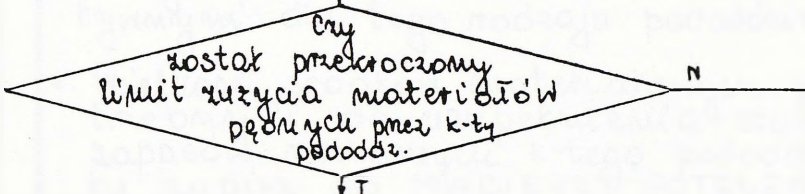 Czy
został przekroczony
limit zużycia materiałów
pędnych przez k-ty
pododdz.
N
T